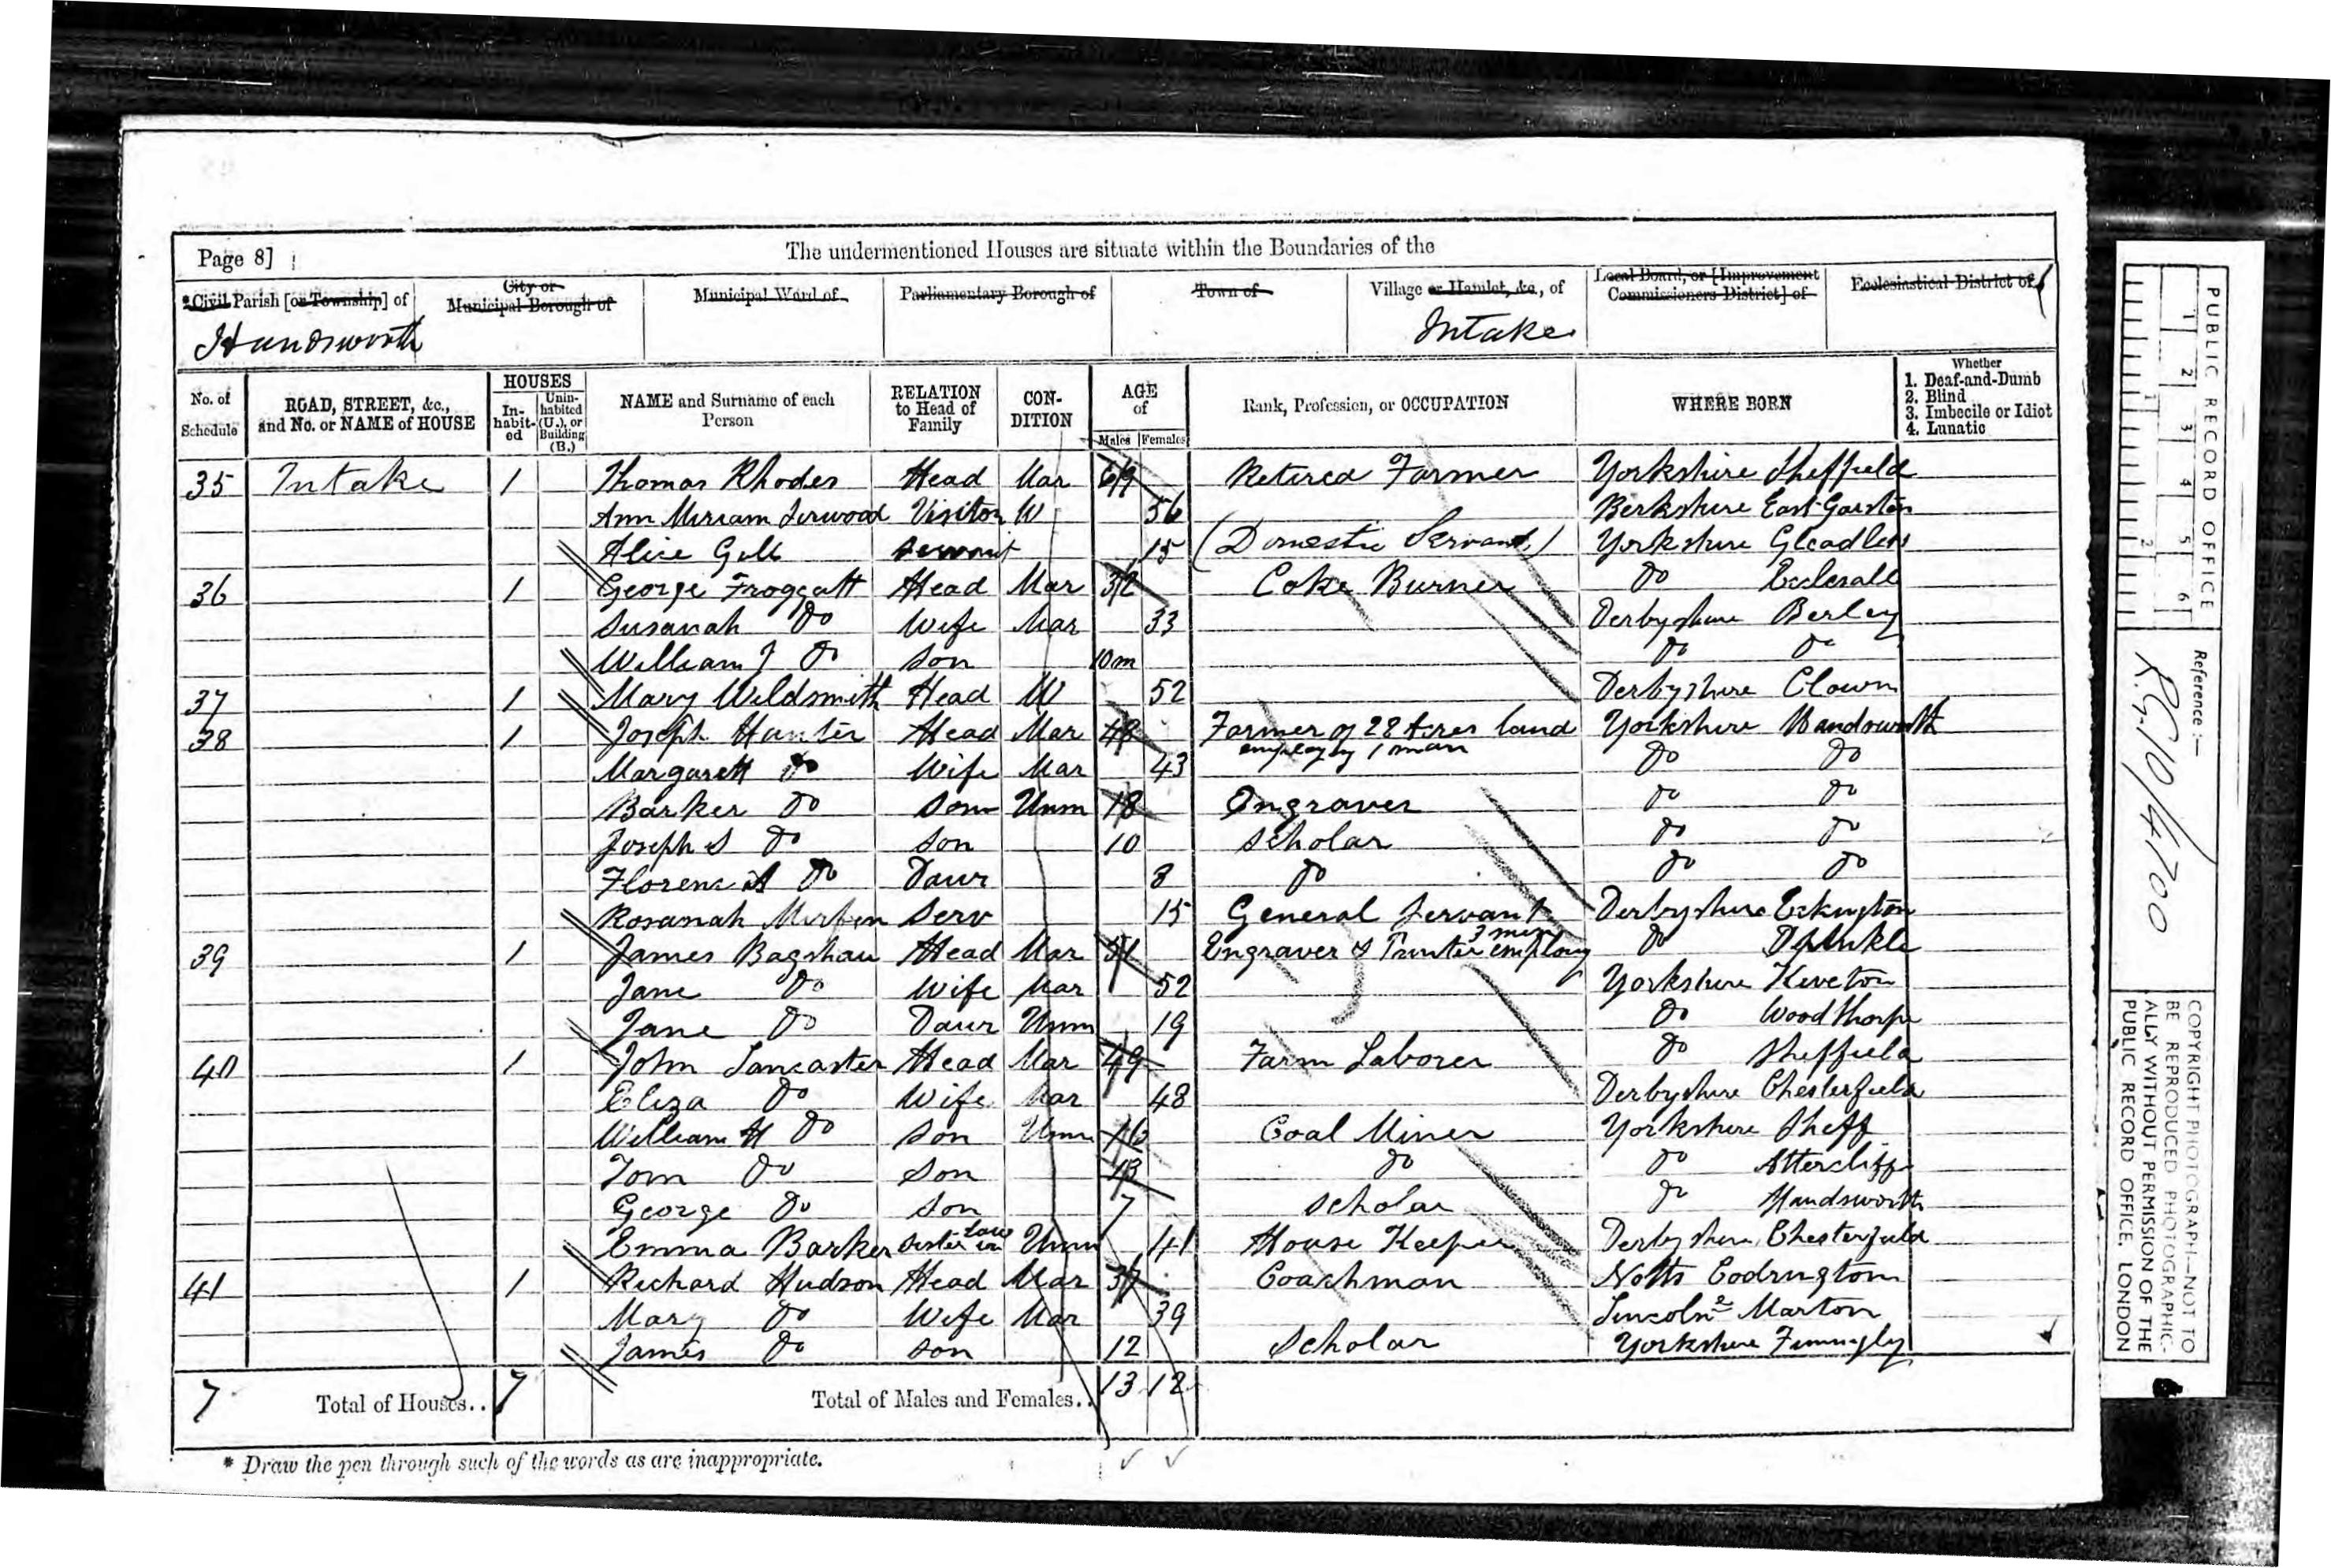 Page 8]
The undermentioned Houses are situate within the Boundaries of the
*Civil Parish [or Township] of
City or Municipal Borough of
Municipal Ward of
Parliamentary Borough of
Town of
Village or Hamlet, &c., of
Local Board, or [Improvement Commissioners District] of
Ecclesiastical District of
Handsworth
Intake
No. of Schedule
ROAD, STREET, &c., and No. or NAME of HOUSE
HOUSES
In-habit-ed
Unin-habited (U.), or Building (B.)
NAME and Surname of each Person
RELATION to Head of Family
CON-DITION
AGE of
Males Females
Rank, Profession, or OCCUPATION
WHERE BORN
Whether
1. Deaf-and-Dumb
2. Blind
3. Imbecile or Idiot
4. Lunatic
35 Intake 1 Thomas Rhodes Head Mar 69 Retired Farmer Yorkshire Sheffield
Ann Miriam Visitor W 56 Berkshire East Garston
Alice Gill Servant 15 (Domestic Servant) Yorkshire Gleadless
36 1 George Froggatt Head Mar 32 Coke Burner Do Ecclesall
Susanah Do Wife Mar 33 Derbyshire Berley
William J Do Son 10m Do Do
37 1 Mary Wildsmith Head W 52 Derbyshire Clown
38 1 Joseph Hunter Head Mar 48 Farmer of 28 Acres land Yorkshire Handsworth
employing 1 man
Margarett Do Wife Mar 43 Do Do
Barker Do Son Unm 18 Engraver Do Do
Joseph S Do Son 10 Scholar Do Do
Florence A Do Daur 8 Do Do Do
Rosanah Serv 15 General Servant Derbyshire Eckington
39 1 James Bagshaw Head Mar 51 Engraver & Printer employ 3 men Do
Jane Do Wife Mar 52 Yorkshire Kiveton
Jane Do Daur Unm 19 Do Woodthorpe
40 1 John Lancaster Head Mar 49 Farm Laborer Do Sheffield
Eliza Do Wife Mar 48 Derbyshire Chesterfield
William H Do Son Unm 16 Coal Miner Yorkshire Sheff
Tom Do Son 13 Do Do Attercliffe
George Do Son 7 Scholar Do Handsworth
Emma Barker Sister in Law Unm 41 House Keeper Derbyshire Chesterfield
41 1 Richard Hudson Head Mar 37 Coachman Notts Codrington
Mary Do Wife Mar 39 Lincoln Marton
James Do Son 12 Scholar Yorkshire Finningly
7 Total of Houses.. 7 Total of Males and Females.. 13 12
* Draw the pen through such of the words as are inappropriate.
PUBLIC RECORD OFFICE
1 2 3 4 5 6
1 2
Reference :—
R.G.10/4700
COPYRIGHT PHOTOGRAPH—NOT TO
BE REPRODUCED PHOTOGRAPHIC-
ALLY WITHOUT PERMISSION OF THE
PUBLIC RECORD OFFICE, LONDON